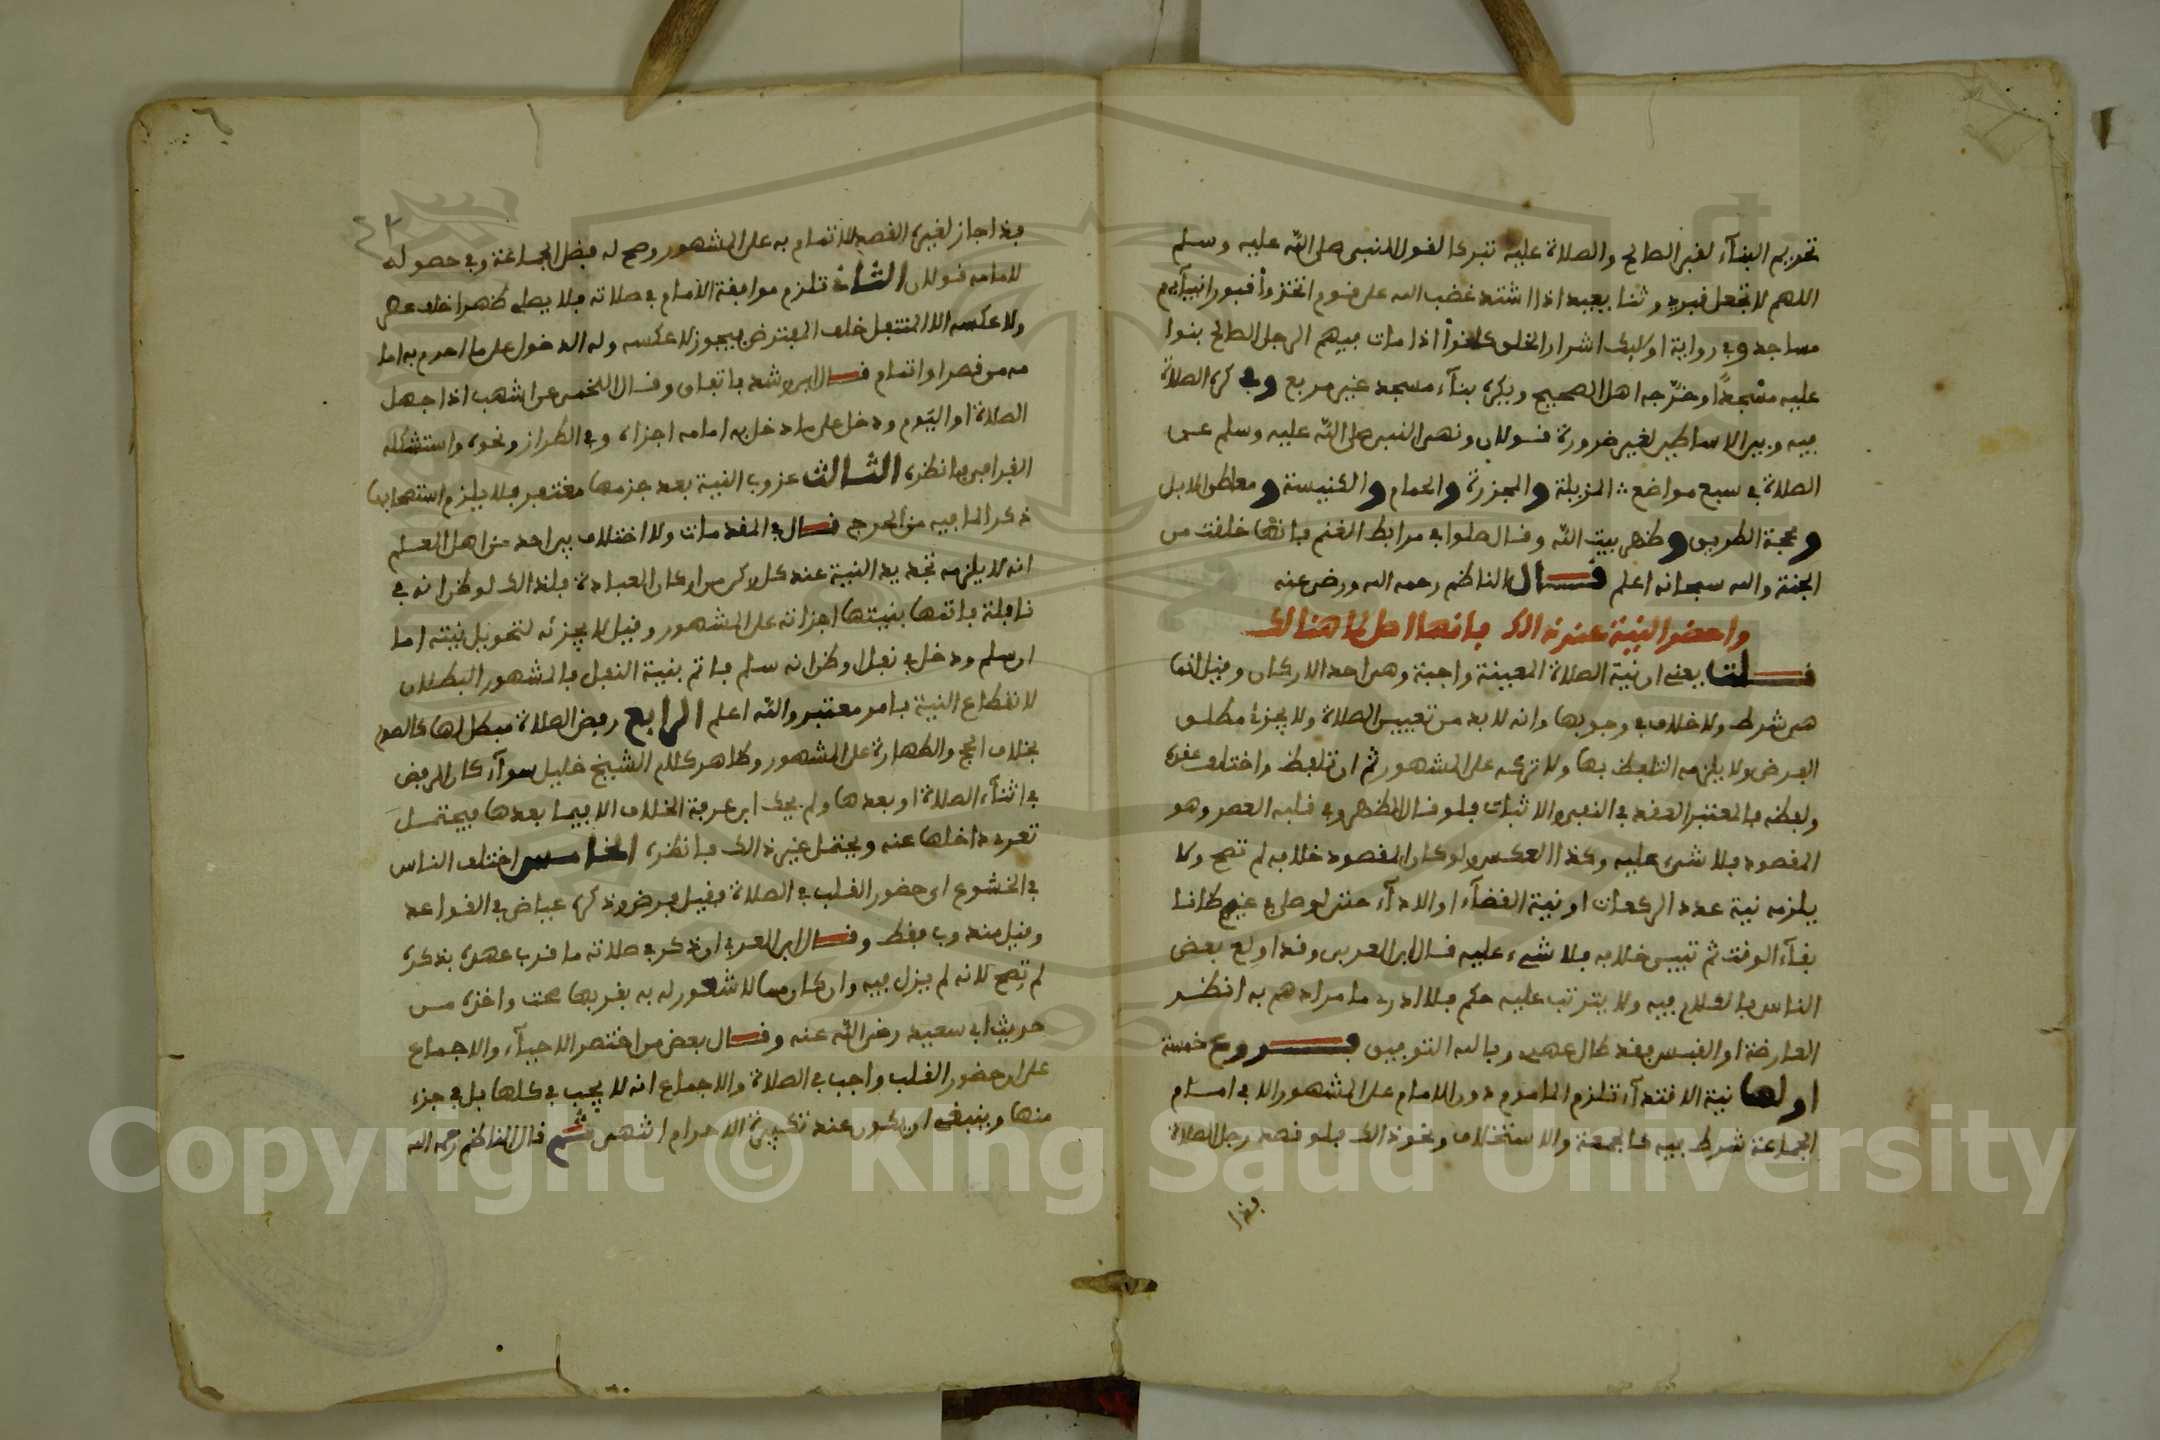 تحريم البنآء لغير الصالح والصلاة عليه تبركا لقول النبي صلى الله عليه وسلم
اللهم لا تجعل قبري وثنا يعبد اذا اشتد غضب الله على قوم اتخذوا قبور انبيآئهم
مساجد وفي رواية اوليك اشرار الخلق كانوا اذا مات فيهم الرجل الصالح بنوا
عليه مسجدا وخرجه اهل الصحيح ويكره بنآء مسجد غير مربع وفي كره الصلاة
فيه وبين الاساطين لغير ضرورة قولان ونهى النبي صلى الله عليه وسلم عن
الصلاة في سبع مواضع المزبلة والمجزرة والحمام والكنيسة ومعاطن الابل
ومحجة الطريق وظهر بيت الله وقال صلوا في مرابط الغنم فانها خلقت من
الجنة والله سبحانه اعلم قال الناظم رحمه الله ورضي عنه
واحضر النية عند ذالك فانها اصل لما هنالك
قلت يعني ان نية الصلاة المعينة واجبة وهي احد الاركان وقيل انها
هي شرط ولا خلاف في وجوبها وانه لا بد من تعيين الصلاة ولا يجزئ مطلق
الفرض ولا يلزمه التلفظ بها ولا تركه على المشهور ثم ان تلفظ واختلف عقده
ولفظه فالمعتبر العقد في النفي والاثبات فلو قال الظهر وفي قلبه العصر وهو
المقصود فلا شيء عليه وكذا العكس ولو كان المقصود خلافه لم تصح ولا
يلزمه نية عدد الركعات او نية القضآء او الادآء حتى لو صلى في غيم ظانا
بقآء الوقت ثم تبين خلافه فلا شيء عليه قال ابن العربي وقد اولع بعض
الناس بالكلام فيه ولا يترتب عليه حكم فلا ادري ما مرادهم به انظر
العارضة او القبس فقد طال عهدي وبالله التوفيق فروع خمسة
اولها نية الاقتدآء تلزم المأموم دون الامام على المشهور الا في امام
الجماعة شرط فيه كالجمعة والاستخلاف ونحو ذالك فلو قصد رجل الصلاة
فذا
٦
٤٣
فذا جاز لغيره القصد للائتمام به على المشهور وصح له فضل الجماعة وفي حصوله
للامامه قولان الثاني تلزم موافقة الامام في صلاته فلا يصلي ظهرا خلف عصر
ولا عكسه الا المتنفل خلف المفترض فيجوز لا عكسه وله الدخول على ما احرم به اما
مه من قصر او اتمام قال ابن رشد باتفاق وقال اللخمي عن اشهب اذا جهل
الصلاة او اليوم ودخل على ما دخل به امامه اجزاه وفي الطراز ونحوه واستشكله
القرافي فانظره الثالث عزوب النية بعد جزمها مغتفر فلا يلزم استصحابها
ذكرا لما فيه من الحرج قال في المقدمات ولا اختلاف بين احد من اهل العلم
انه لا يلزمه تجديد النية عند كل ركن من اركان العبادة فلذالك لو ظن انه في
نافلة فاتمها بنيتها اجزاته على المشهور وقيل لا يجزئه لتحويل نيته اما
ان سلم ودخل في نفل او ظن انه سلم فاتم بنية النفل فالمشهور البطلان
لانقطاع النية بامر معتبر والله اعلم الرابع رفض الصلاة مبطل لها كالصوم
بخلاف الحج والطهارة على المشهور وظاهر كلام الشيخ خليل سوآء كان الرفض
في اثنآء الصلاة او بعدها ولم يحك ابن عرفة الخلاف الا فيما بعدها فيحتمل
تفرده داخلها عنه ويحتمل غير ذالك فانظره الخامس اختلف الناس
في الخشوع اي حضور القلب في الصلاة فقيل فرض وذكره عياض في القواعد
وقيل مندوب فقط وقال ابن العربي ان ذكر في صلاته ما قرب عهده بذكره
لم تصح لانه لم يزل فيه وان كان مما لا شعور له به بقربها صحت واخذه من
حديث ابي سعيد رضي الله عنه وقال بعض من اختصر الاحيآء والاجماع
على ان حضور القلب واجب في الصلاة والاجماع انه لا يجب في كلها بل في جزء
منها وينبغي ان يكون عند تكبيرة الاحرام انتهى ثم قال الناظم رحمه الله
Copyright © King Saud University